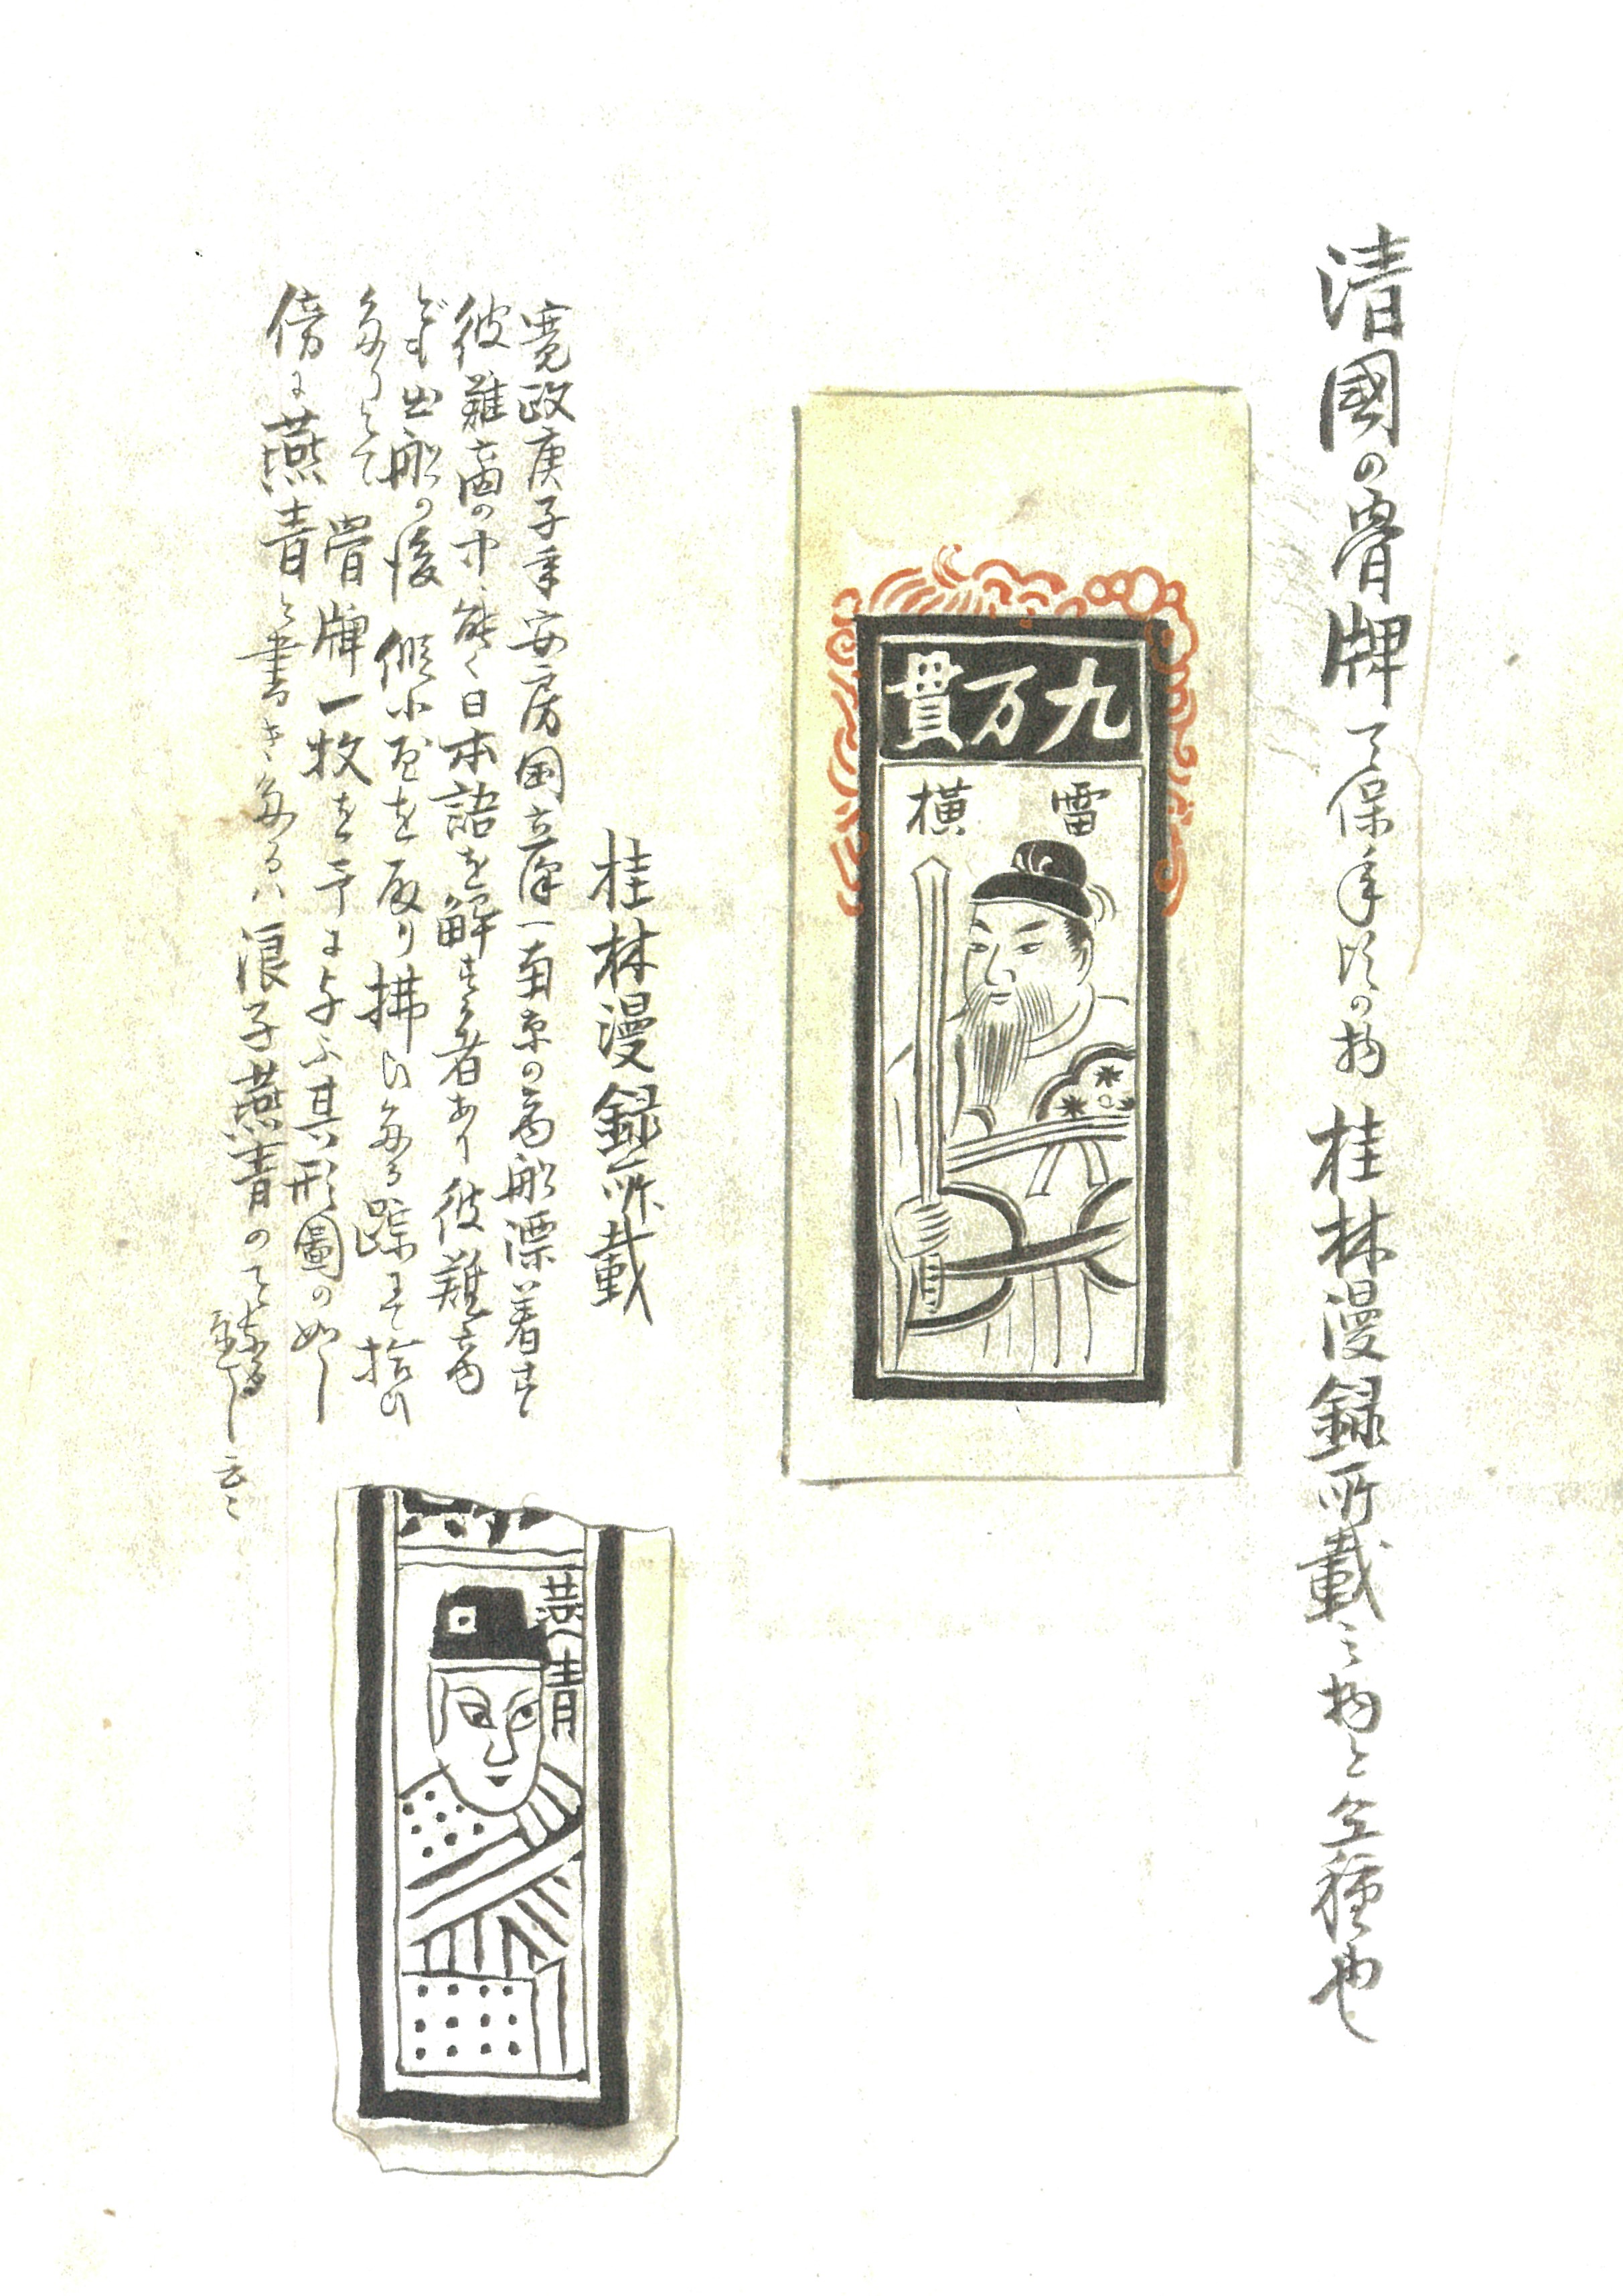 清國の骨牌 天保年頃の物 桂林漫録所載之物と仝種也
九万貫
雷横
桂林漫録所載
寛政庚子年安房国立澤一南京の商船漂着す
彼難商の中能く日本語を解する者あり彼難商
ども出船の後假小屋を取り拂ひたる跡にて拾ひ
たりとて骨牌一枚を予に与ふ其形圖の如し
傍に燕青と書きたるハ浪子燕青の
云々
燕青